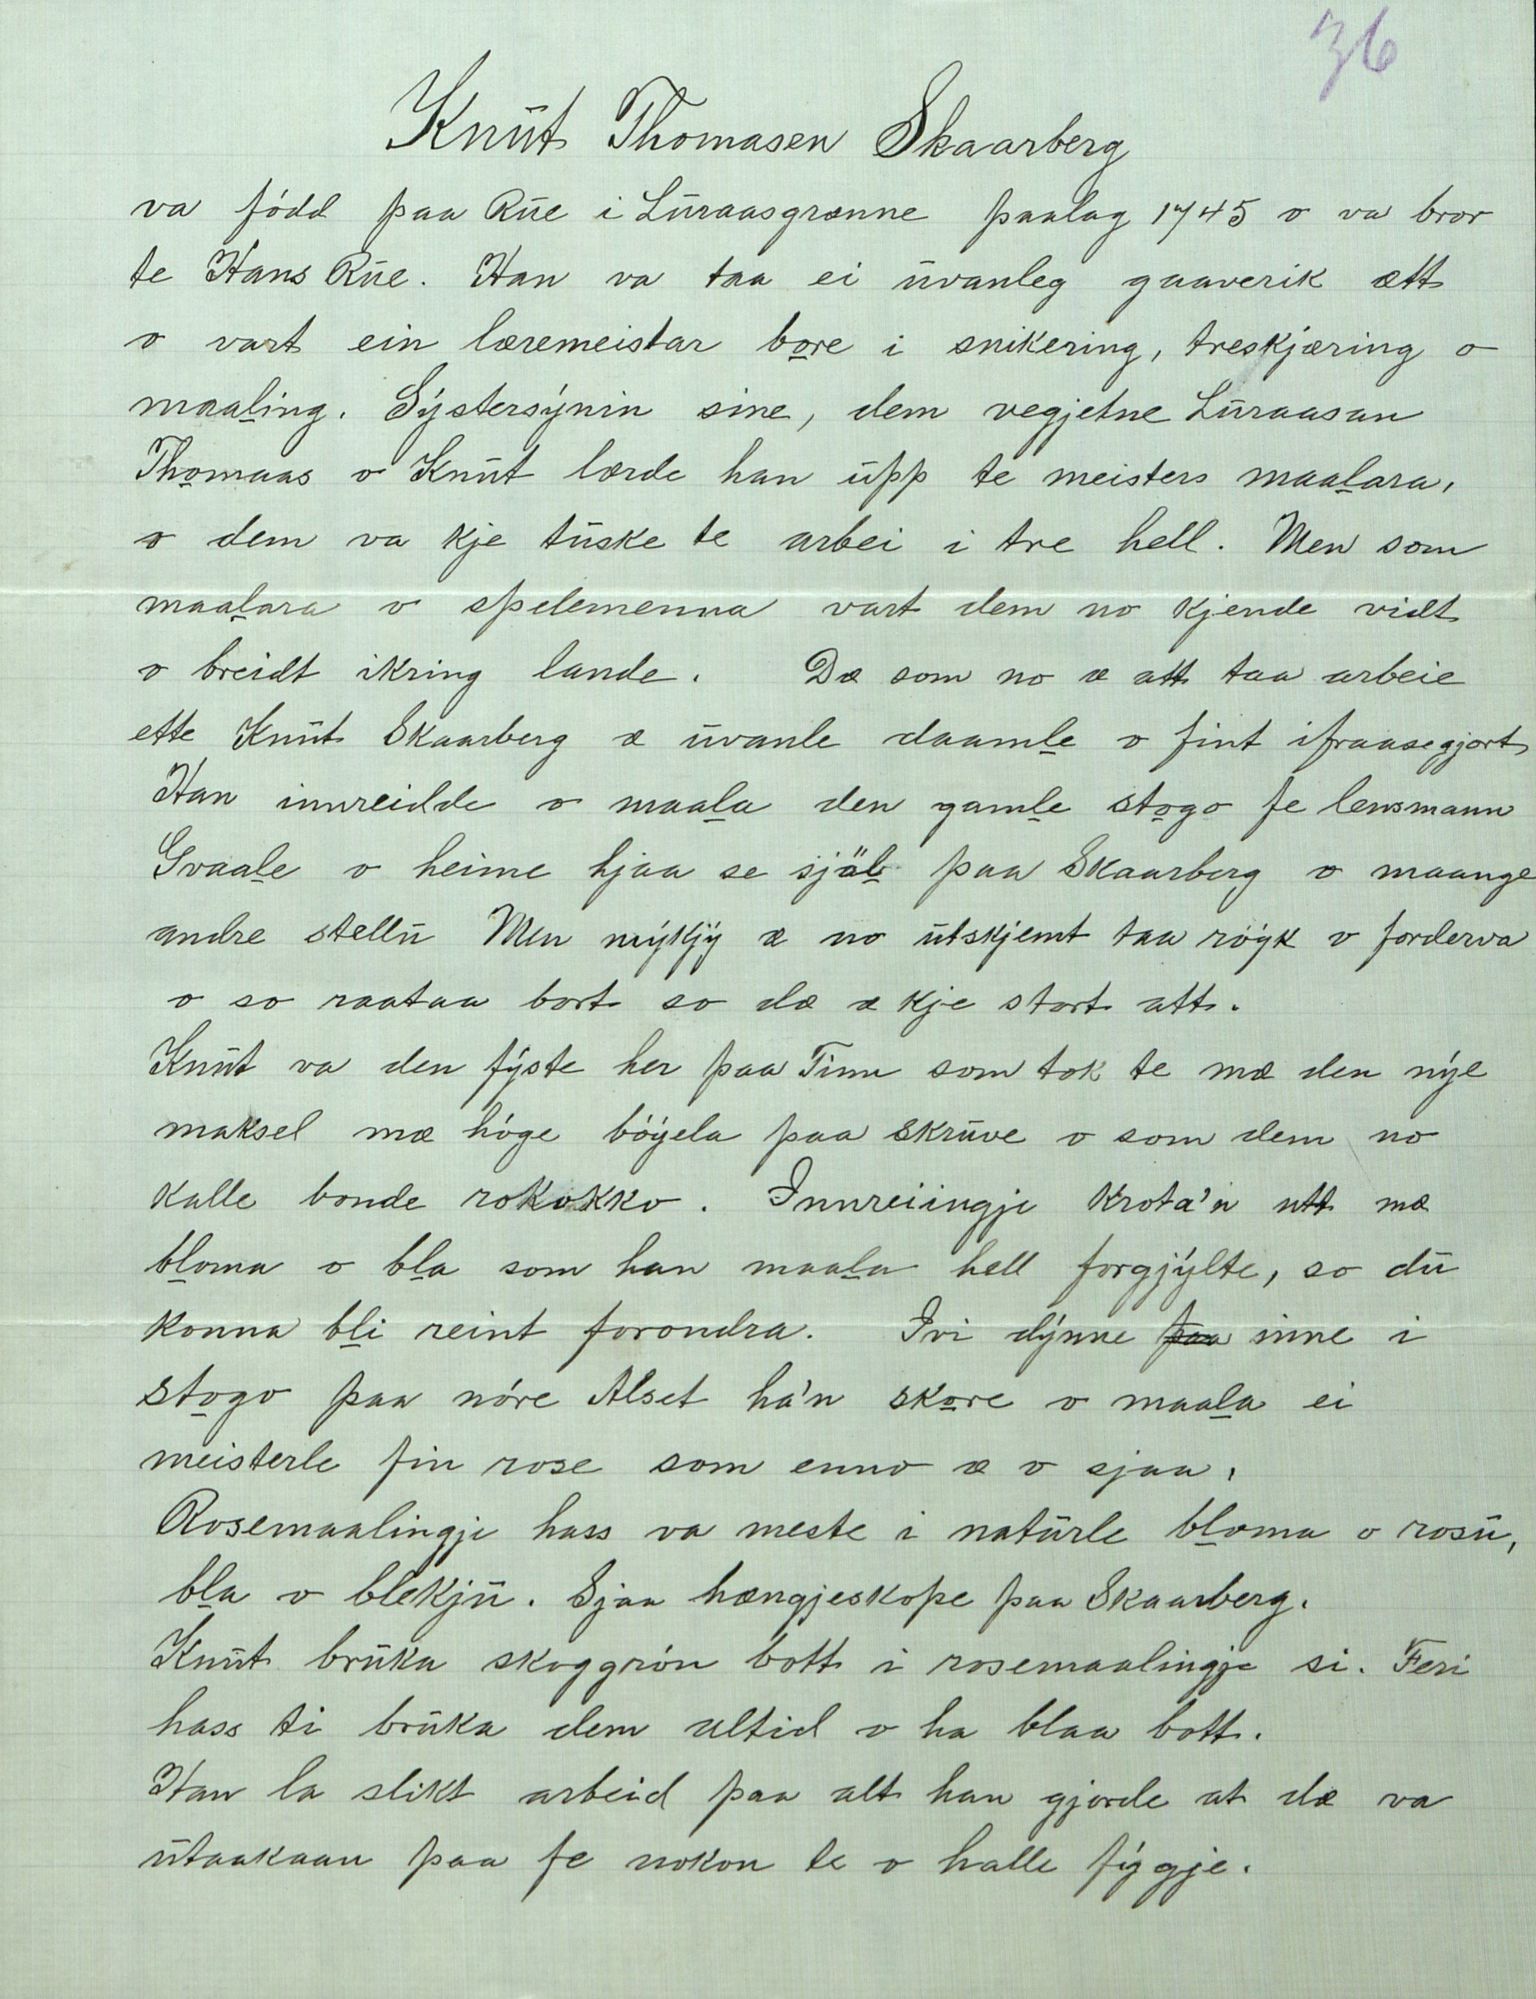 36
Knut Thomasen Skaarberg
va född paa Rue i Luraasgrænne paalag 1745 o va bror
te Hans Rue. Han va taa ei uvanleg gaaverik ætt
o vart ein læremeistar bore i snikering, treskjæring o
maaling. Systersynin sine, dem vegjetne Luraasan
Thomaas o Knut lærde han upp te meisters maalara,
o dem va kje tuske te arbei i tre hell. Men som
maalara o spelemenna vart dem no kjende vidt
o breidt ikring lande. Dæ som no æ att taa arbeie
ette Knut Skaarberg æ uvanle daamle o fint ifraasegjort
Han innreidde o maala den gamle stogo fe lensmann
Gvaale o heime hjaa se själv paa Skaarberg o maange
andre stellu Men mykjy æ no utskjemt taa röyk o forderva
o so raataa bort so dæ æ kje stort att.
Knut va den fyste her paa Tinn som tok te mæ den nye
maksel mæ höge böyela paa skruve o som dem no
kalle bonde rokokko. Innreiingje krota'n utt mæ
bloma o bla som han maala hell forgjylte, so du
konna bli reint forondra. Ivi dynne paa inne i
stogo paa nöre Alset ha'n skore o maala ei
meisterle fin rose som enno æ o sjaa,
Rosemaalingje hass va meste i naturle bloma o rosu,
bla o blekju. Sjaa hængjeskope paa Skaarberg.
Knut bruka skoggrön bott i rosemaalingje si. Feri
hass ti bruka dem altid o ha blaa bott.
Han la slikt arbeid paa alt han gjorde at dæ va
utaakaan paa fe nokon te o halle fygje.